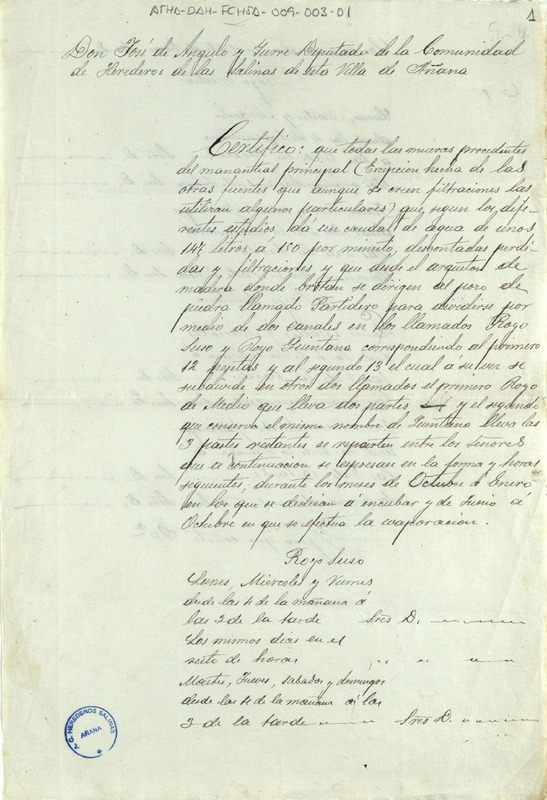 ATHA-DAH-FCHSA-009-003-01
1
Don José de Angulo y Iurre Diputado de la Comunidad
de Herederos de las Salinas de esta Villa de Añana
Certifico: que todas las mueras procedentes
del manantial principal (Excepcion hecha de las
otras fuentes que aunque se creen filtraciones las
utilizan algunos particulares) que, segun los dife-
rentes estudios, dá un caudal de agua de unos
147 litros á 150 por minuto, descontadas perdi-
das y filtraciones y que desde el arqueton de
madera donde brotan se dirigen al pozo de
piedra llamado Partidero para dividirse por
medio de dos canales en los llamados Royo
Suso y Royo Quintana correspondiendo al primero
12 fajitas y al segundo 13 el cual a su vez se
subdivide en otros dos llamados el primero Royo
de Medio que lleva dos partes y el segundo
que conserva el mismo nombre de Quintana lleva las
3 partes restantes se reparten entre los señores
que a continuacion se expresan en la forma y horas
siguientes, durante los meses de Octubre á Enero
en los que se dedican á encubar y de Junio á
Octubre en que se efectua la evaporacion.
Royo Suso
Lunes, Miercoles y Viernes
desde las 4 de la mañana á
las 2 de la tarde Sres D.
Los mismos dias en el
resto de horas
Martes, Jueves, sabados y domingos
desde las 4 de la mañana á las
2 de la tarde Sres D.
G. HEREDEROS SALINAS
AÑANA